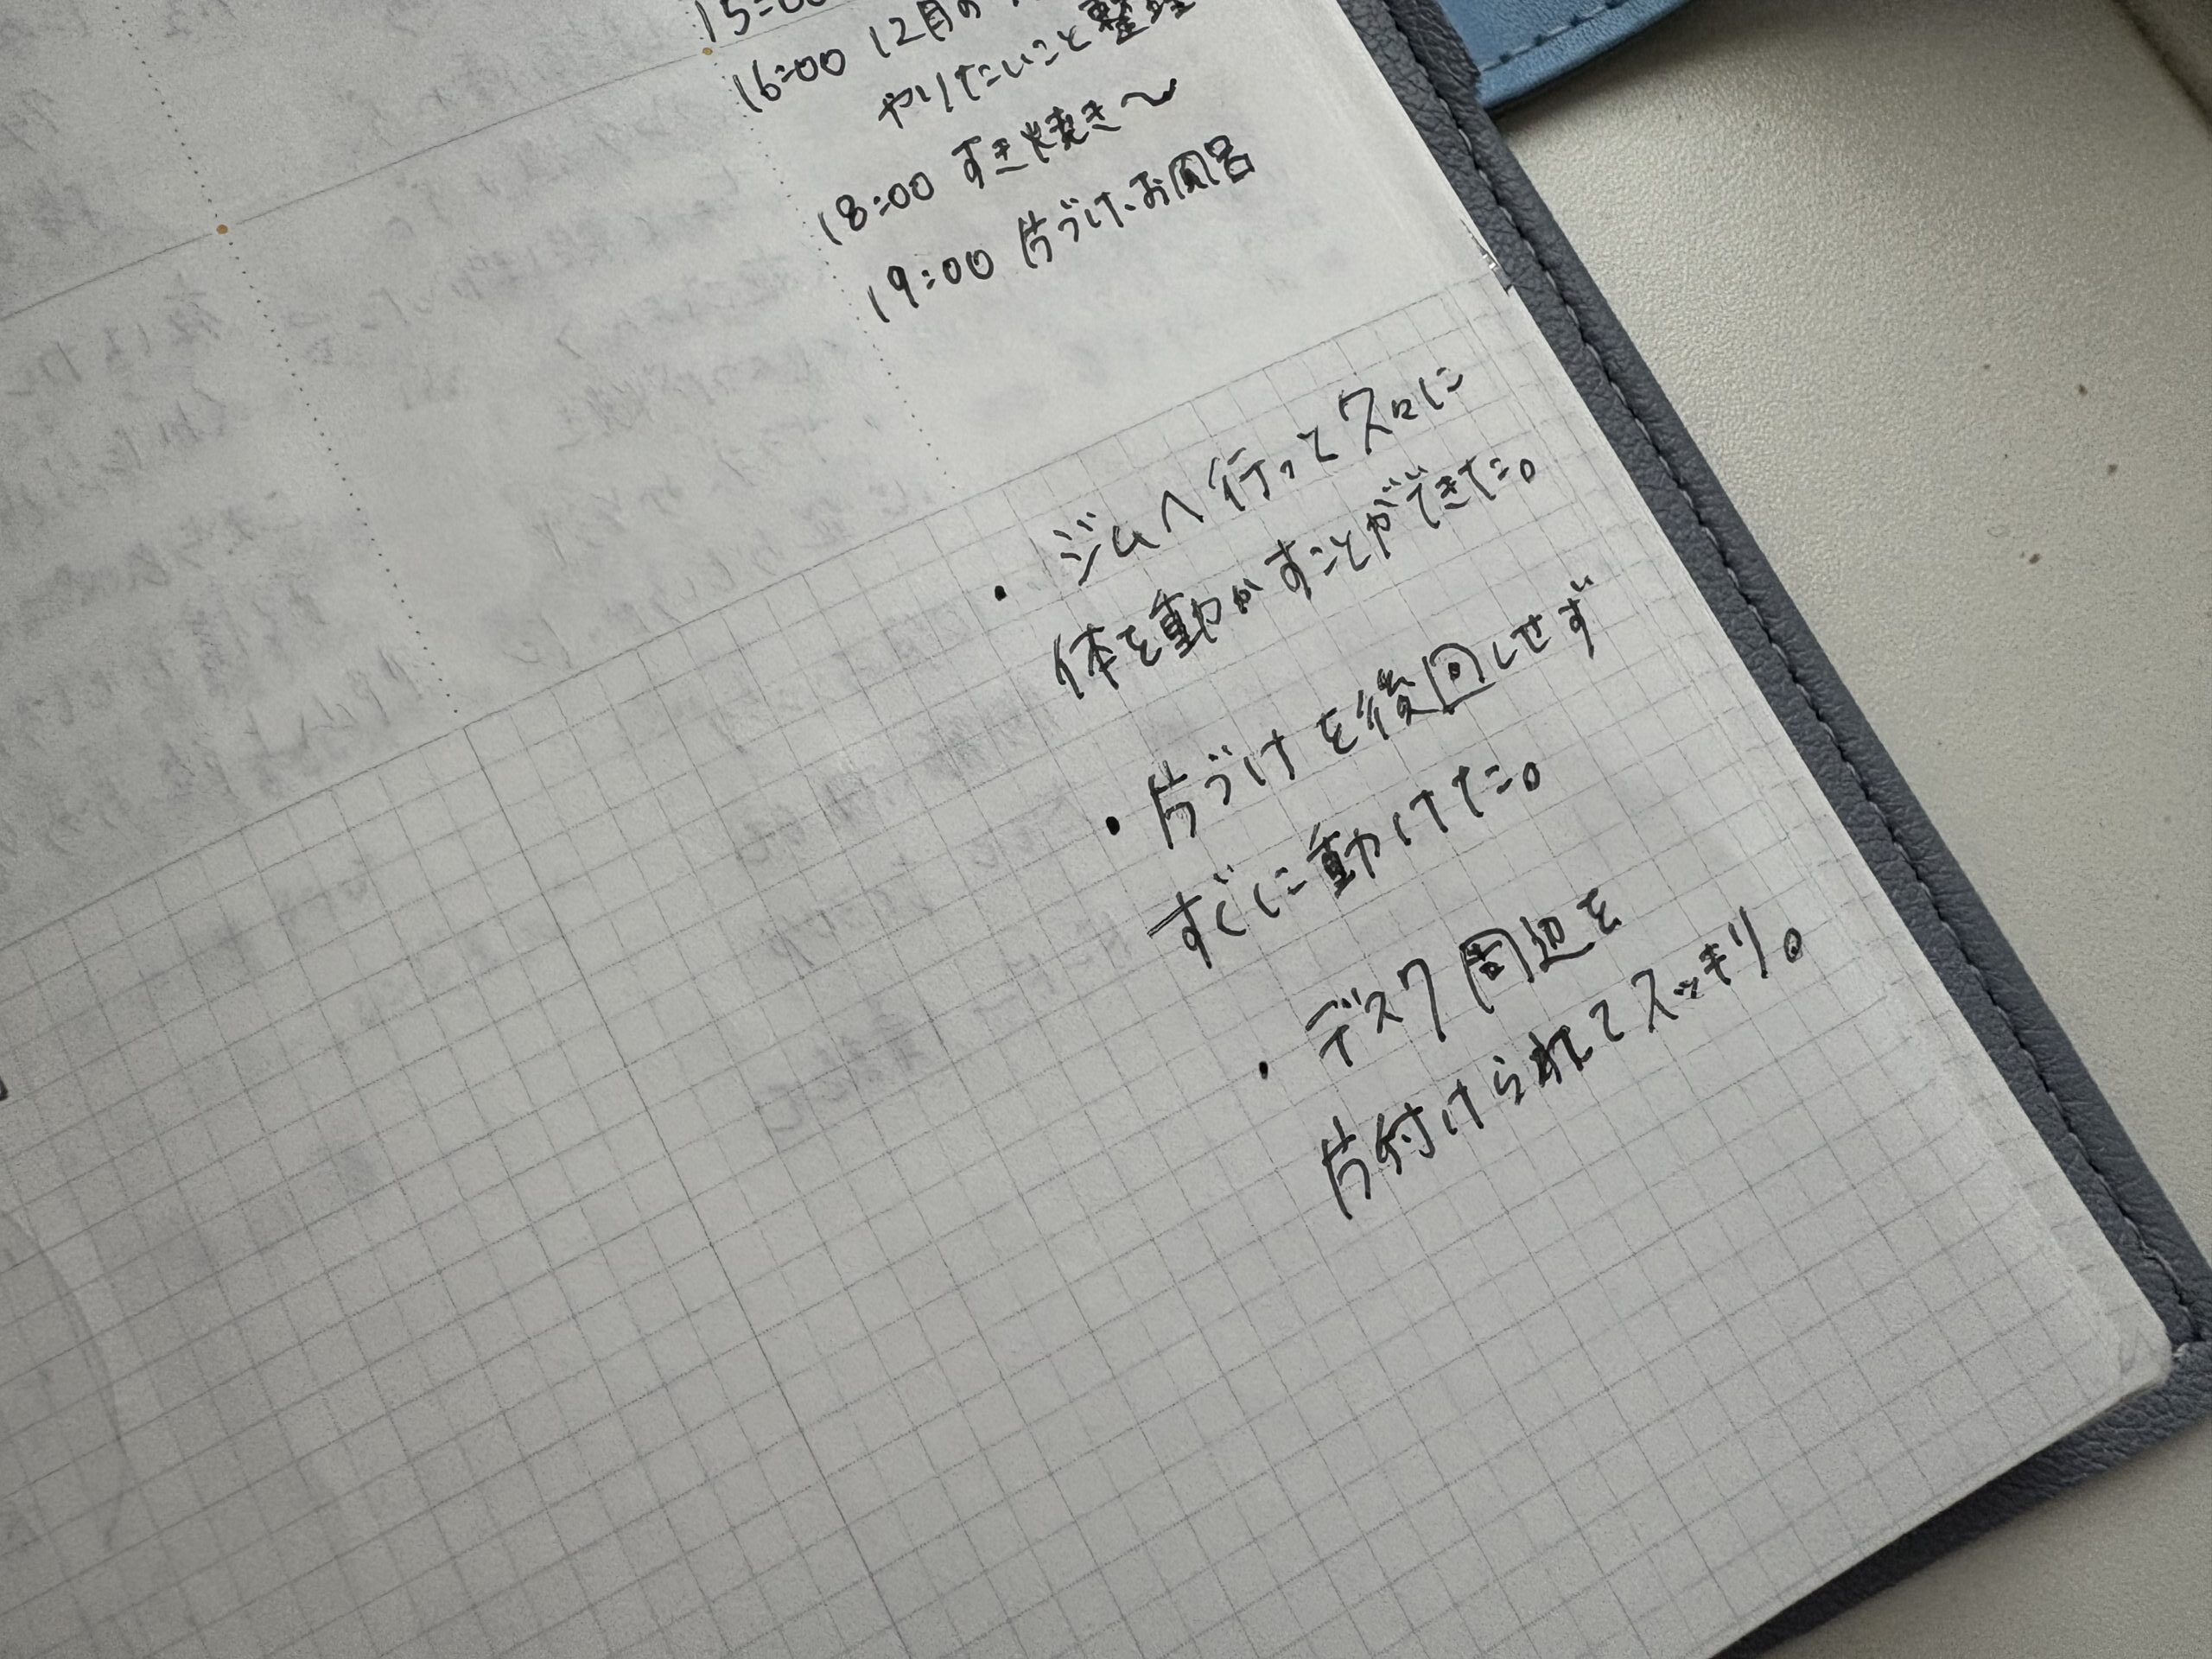 15:00
16:00 12月の
やりたいこと整理
18:00 すき焼き〜
19:00 片づけ、お風呂
・ジムへ行ってスロに
体を動かすことができた。
・片づけを後回しせず
すぐに動けた。
・デスク周辺を
片付けられてスッキリ。